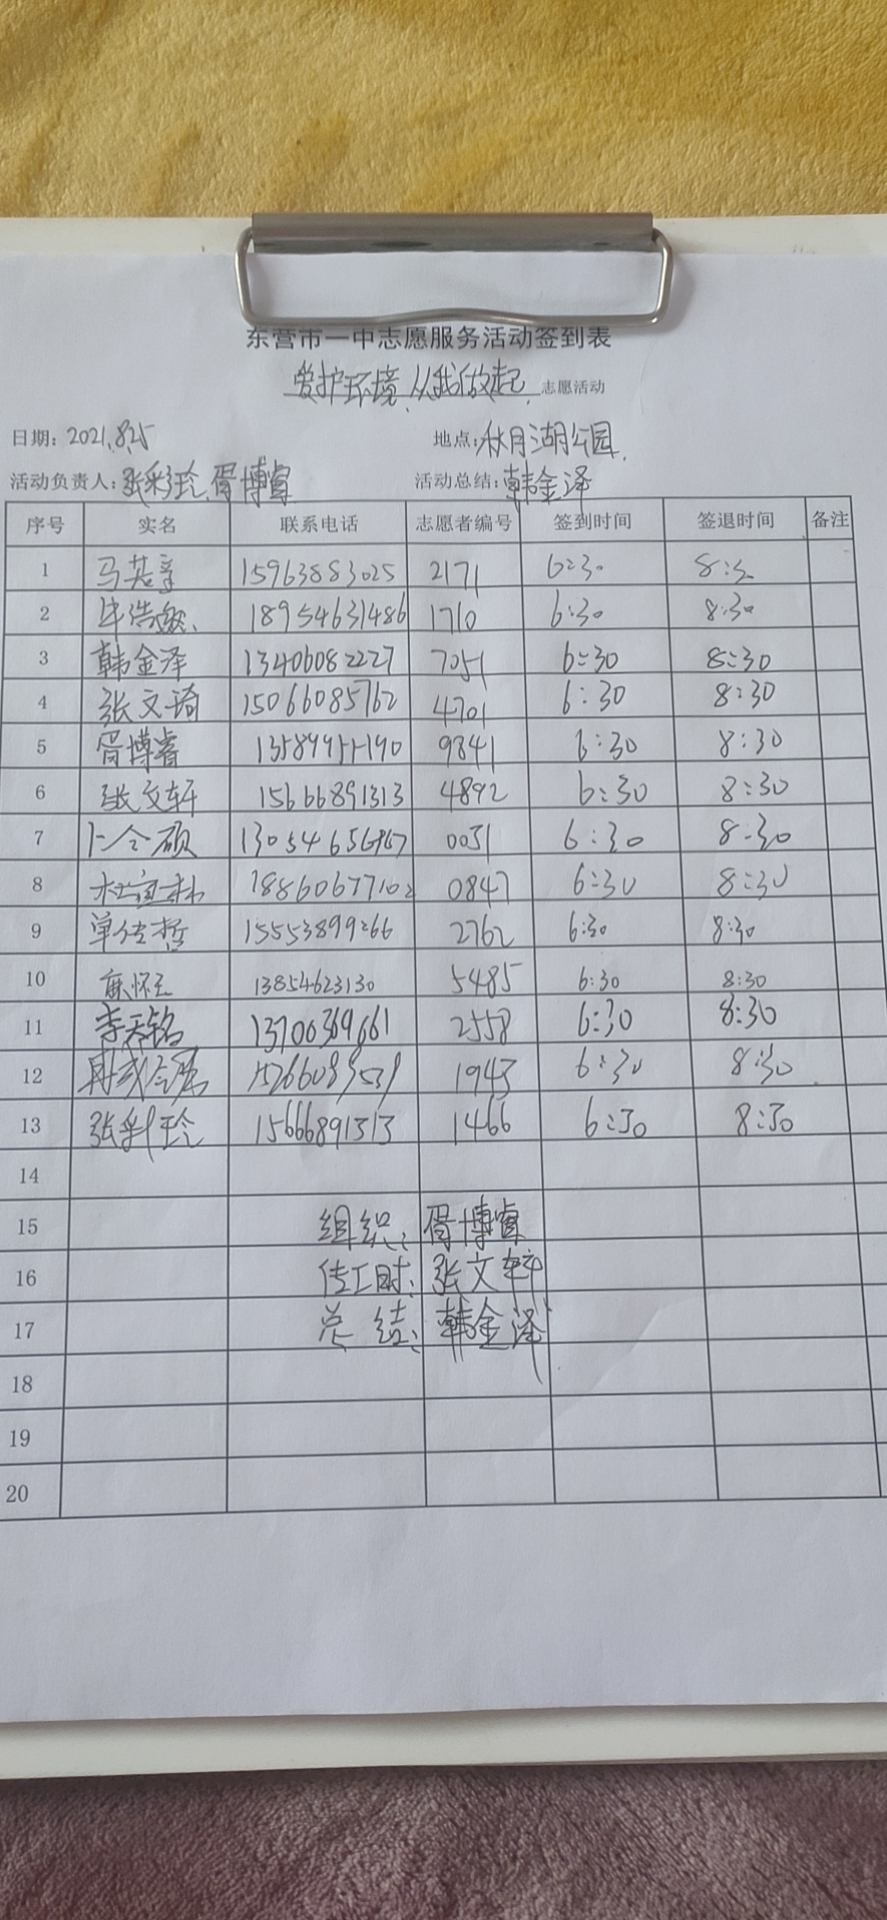 东营市一中志愿服务活动签到表
爱护环境,从我做起 志愿活动
日期: 2021.8.25 地点: 秋月湖公园
活动负责人: 张彩玲 胥博睿 活动总结: 韩金泽
序号 实名 联系电话 志愿者编号 签到时间 签退时间 备注
1 马英 15963883025 2171 6:30 8:3
2 牛浩 18954631486 1710 6:30 8:30
3 韩金泽 13406082227 7051 6:30 8:30
4 张文琦 15066085762 4701 6:30 8:30
5 胥博睿 9841 6:30 8:30
6 张文轩 15666891313 4892 6:30 8:30
7 卜令硕 0031 6:30 8:30
8 18860677102 0847 6:30 8:30
9 单传哲 15553899266 2762 6:30 8:30
10 麻怀 13854623130 5485 6:30 8:30
11 李天铭 13700369661 2558 6:30 8:30
12 1943 6:30 8:30
13 张彩玲 15666891313 1466 6:30 8:30
14
15 组织: 胥博睿
16 传工时: 张文轩
17 总结: 韩金泽
18
19
20